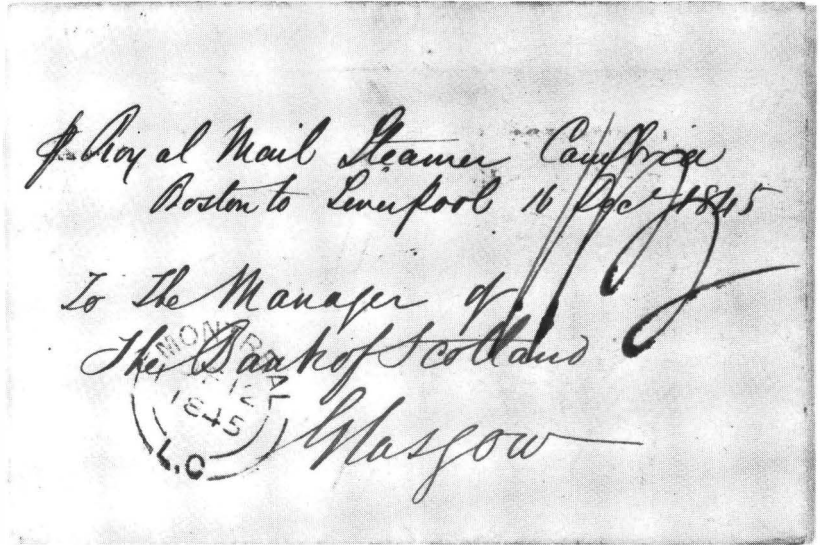 p Royal Mail Steamer Cambria
Boston to Liverpool 16 Decr 1845
To The Manager of
The Bank of Scotland
Glasgow
MONTREAL
12
1845
L.C